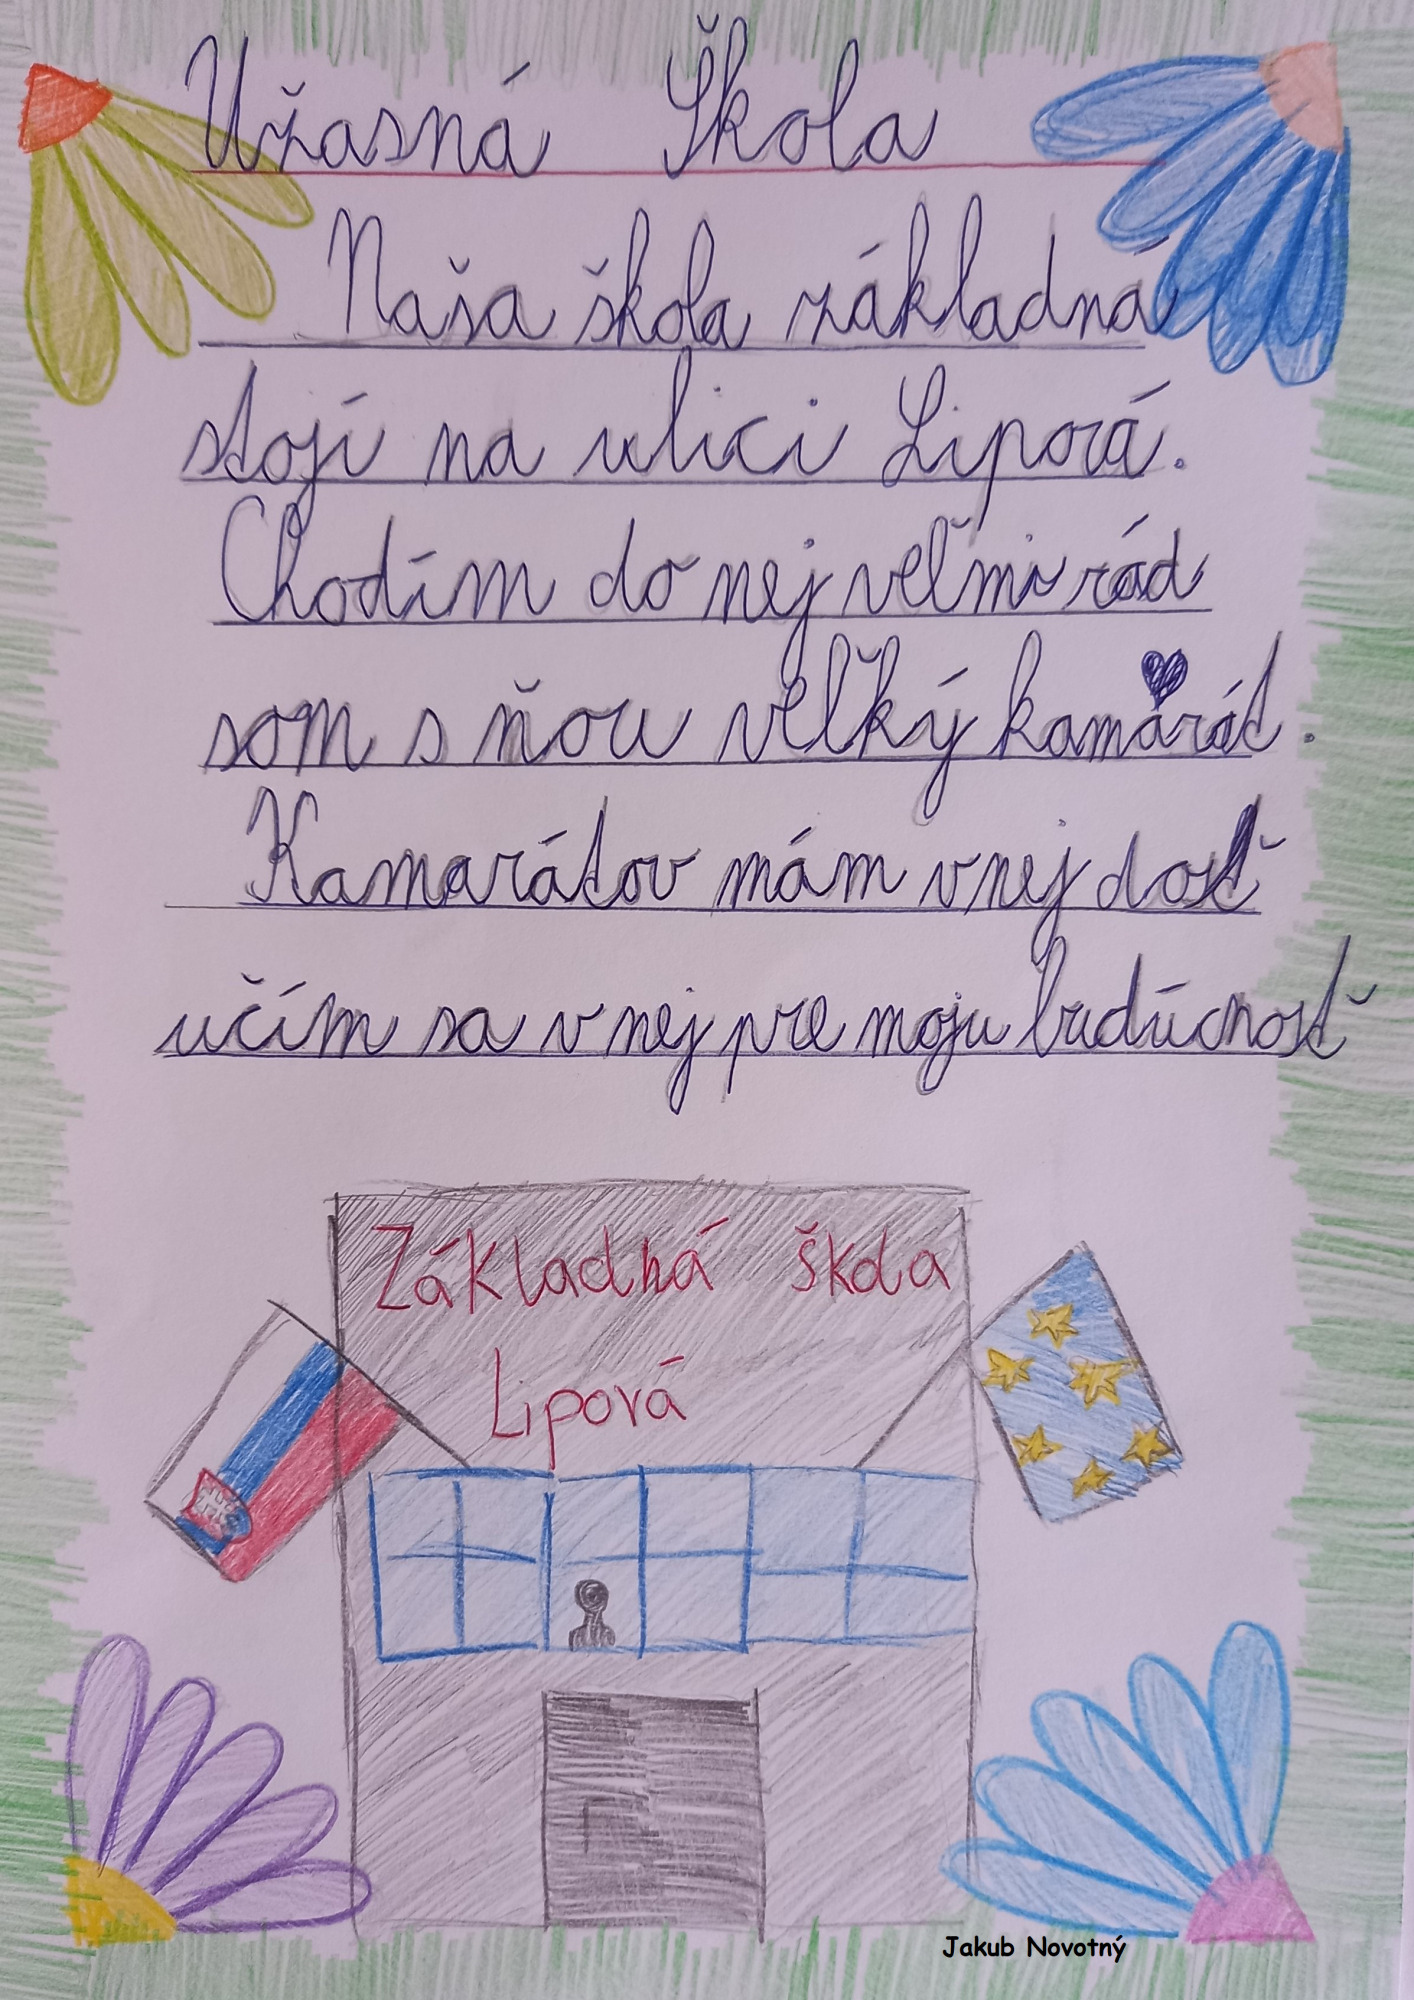 Užasná Škola
Naša škola základná
stojí na ulici Lipová.
Chodím do nej veľmi rád
som s ňou veľký kamarát.
Kamarátov mám v nej dosť
učím sa v nej pre moju budúcnosť
Základná škola
Lipová
Jakub Novotný